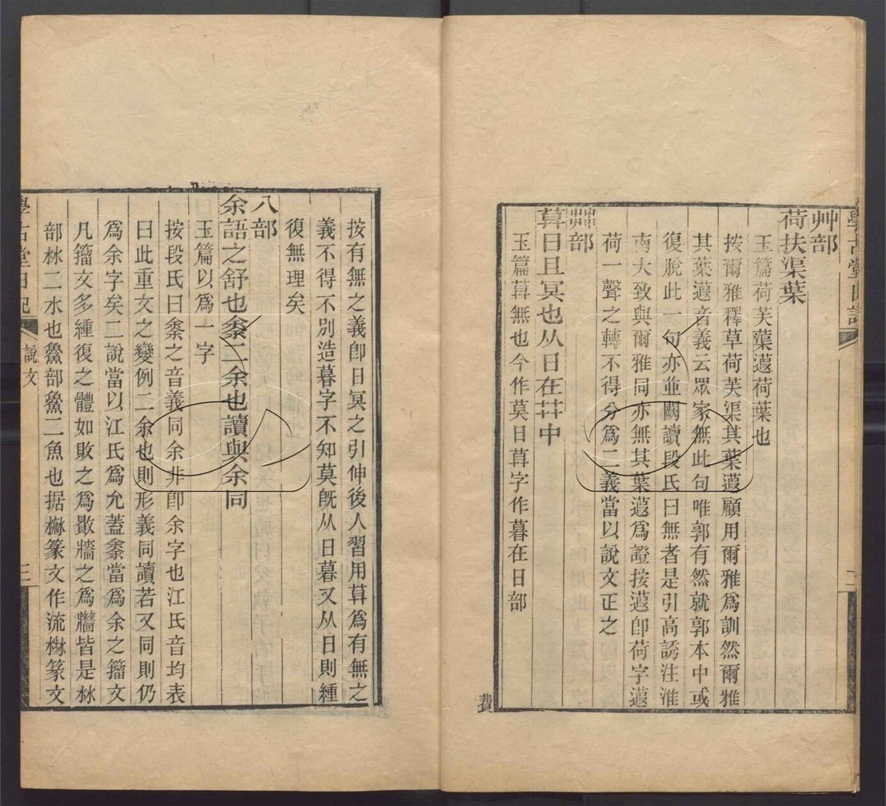 艸部
荷扶渠葉
玉篇荷芙蕖薖荷葉也
按爾雅釋草荷芙渠其葉薖顧用爾雅爲訓然爾雅
其葉薖音義云眾家無此句唯郭有然就郭本中或
復脫此一句亦並闕讀段氏曰無者是引高誘注淮
南大致與爾雅同亦無其葉薖爲證按薖卽荷字薖
荷一聲之轉不得分爲二義當以說文正之
茻部
莫日且冥也从日在茻中
玉篇莫無也今作莫日莫字作暮在日部
費
按有無之義卽日冥之引伸後人習用莫爲有無之
義不得不別造暮字不知莫旣从日暮又从日則緟
復無理矣
八部
余語之舒也𠎳二余也讀與余同
玉篇以爲一字
按段氏曰𠎳之音義同余非卽余字也江氏音均表
曰此重文之變例二余也則形義同讀若又同則仍
爲余字矣二說當以江氏爲允蓋𠎳當爲余之籀文
凡籀文多緟復之體如敗之爲𣀕牆之爲牆皆是沝
部沝二水也䲆部䲆二魚也据㵉篆文作流㵉篆文
學古堂日記
說文
三